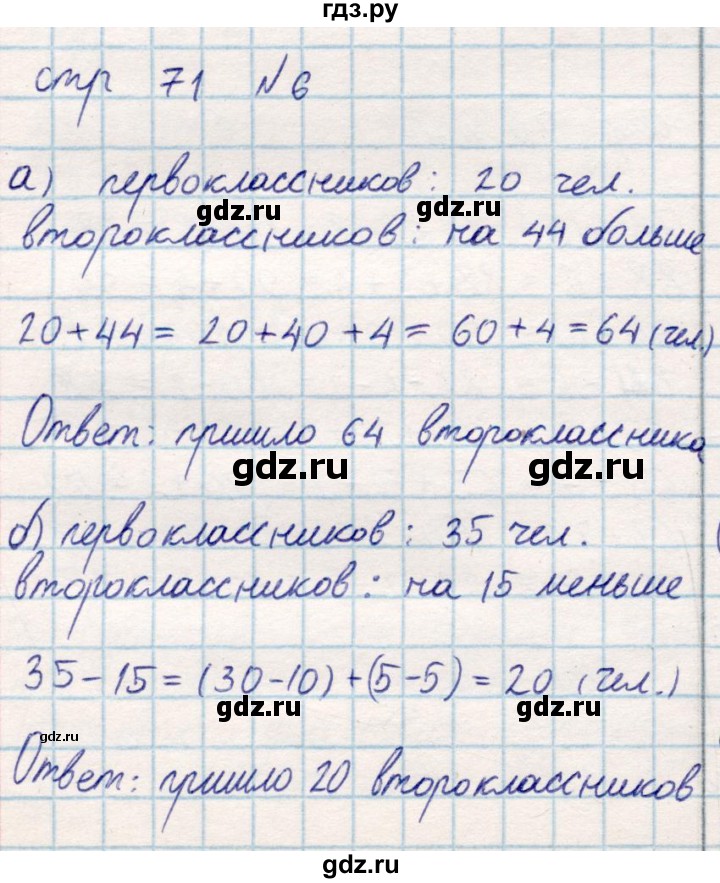 гдз.ру
стр 71 №6
а) первоклассников: 20 чел.
gdz.ru gdz.ru
второклассников: на 44 больше
20+44= 20+40+4= 60+4=64 (чел.)
Ответ: пришло 64 второклассника
gdz.ru gdz.ru
б) первоклассников: 35 чел.
второклассников: на 15 меньше
35-15=(30-10)+(5-5)=20 (чел.)
gdz.ru gdz.ru
gdz.ru
Ответ: пришло 20 второклассников
gdz.ru